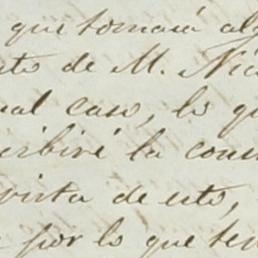 que tomará al
de M. Nic
caso, lo q
la cons
vista de esto,
por lo que ten